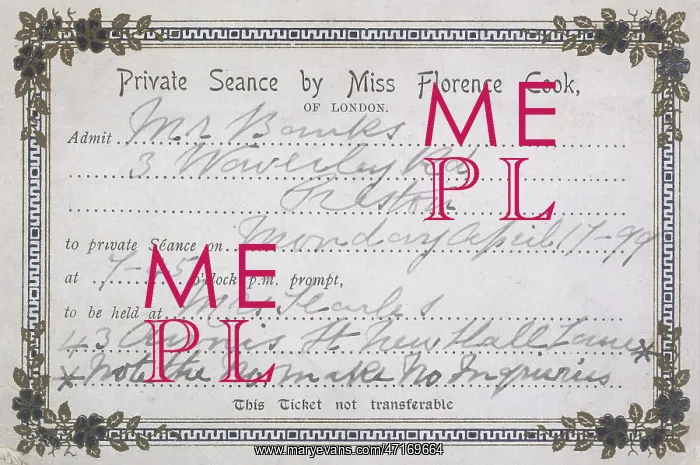 Private Seance by Miss Florence Cook,
OF LONDON.
Admit Mr Banks
3 Waverley Rd
Preston
to private Séance on Monday April 17-99
at 7- o'clock p.m. prompt,
to be held at Mrs
43 St New Hall Lane*
* Note the No make No Inquiries
This Ticket not transferable
ME
PL
ME
PL
www.maryevans.com/47169664